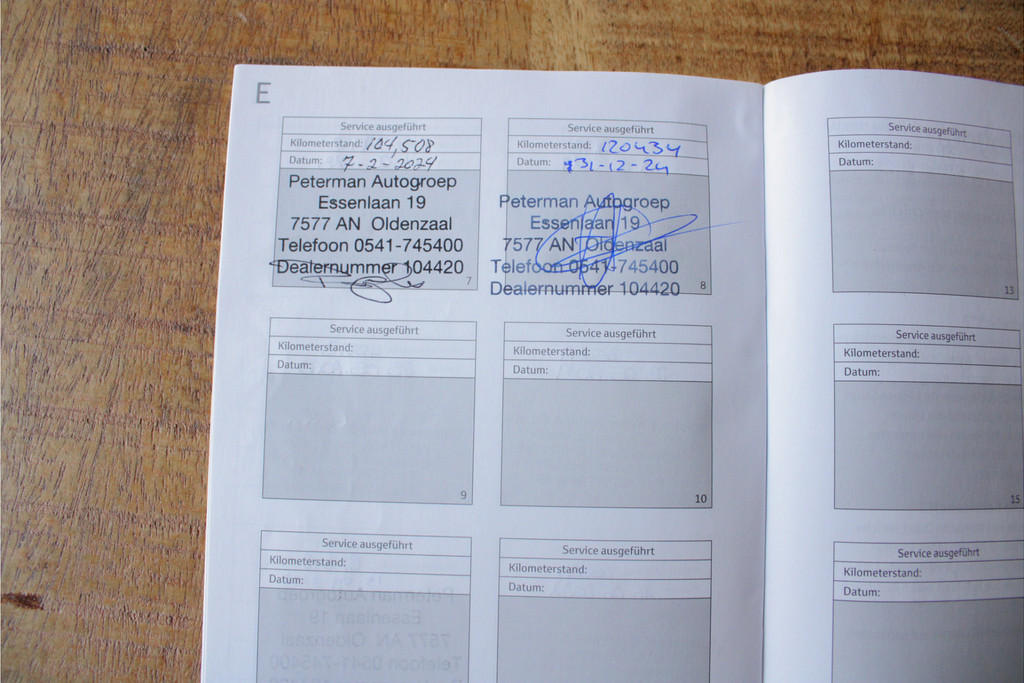 E
Service ausgeführt
Kilometerstand: 104,508
Datum: 7-2-2024
Peterman Autogroep
Essenlaan 19
7577 AN Oldenzaal
Telefoon 0541-745400
Dealernummer 104420
7
Service ausgeführt
Kilometerstand: 120434
Datum: 31-12-24
Peterman Autogroep
Essenlaan 19
7577 AN Oldenzaal
Telefoon 0541-745400
Dealernummer 104420
8
Service ausgeführt
Kilometerstand:
Datum:
9
Service ausgeführt
Kilometerstand:
Datum:
10
Service ausgeführt
Kilometerstand:
Datum:
Service ausgeführt
Kilometerstand:
Datum:
Service ausgeführt
Kilometerstand:
Datum:
13
Service ausgeführt
Kilometerstand:
Datum:
15
Service ausgeführt
Kilometerstand:
Datum: